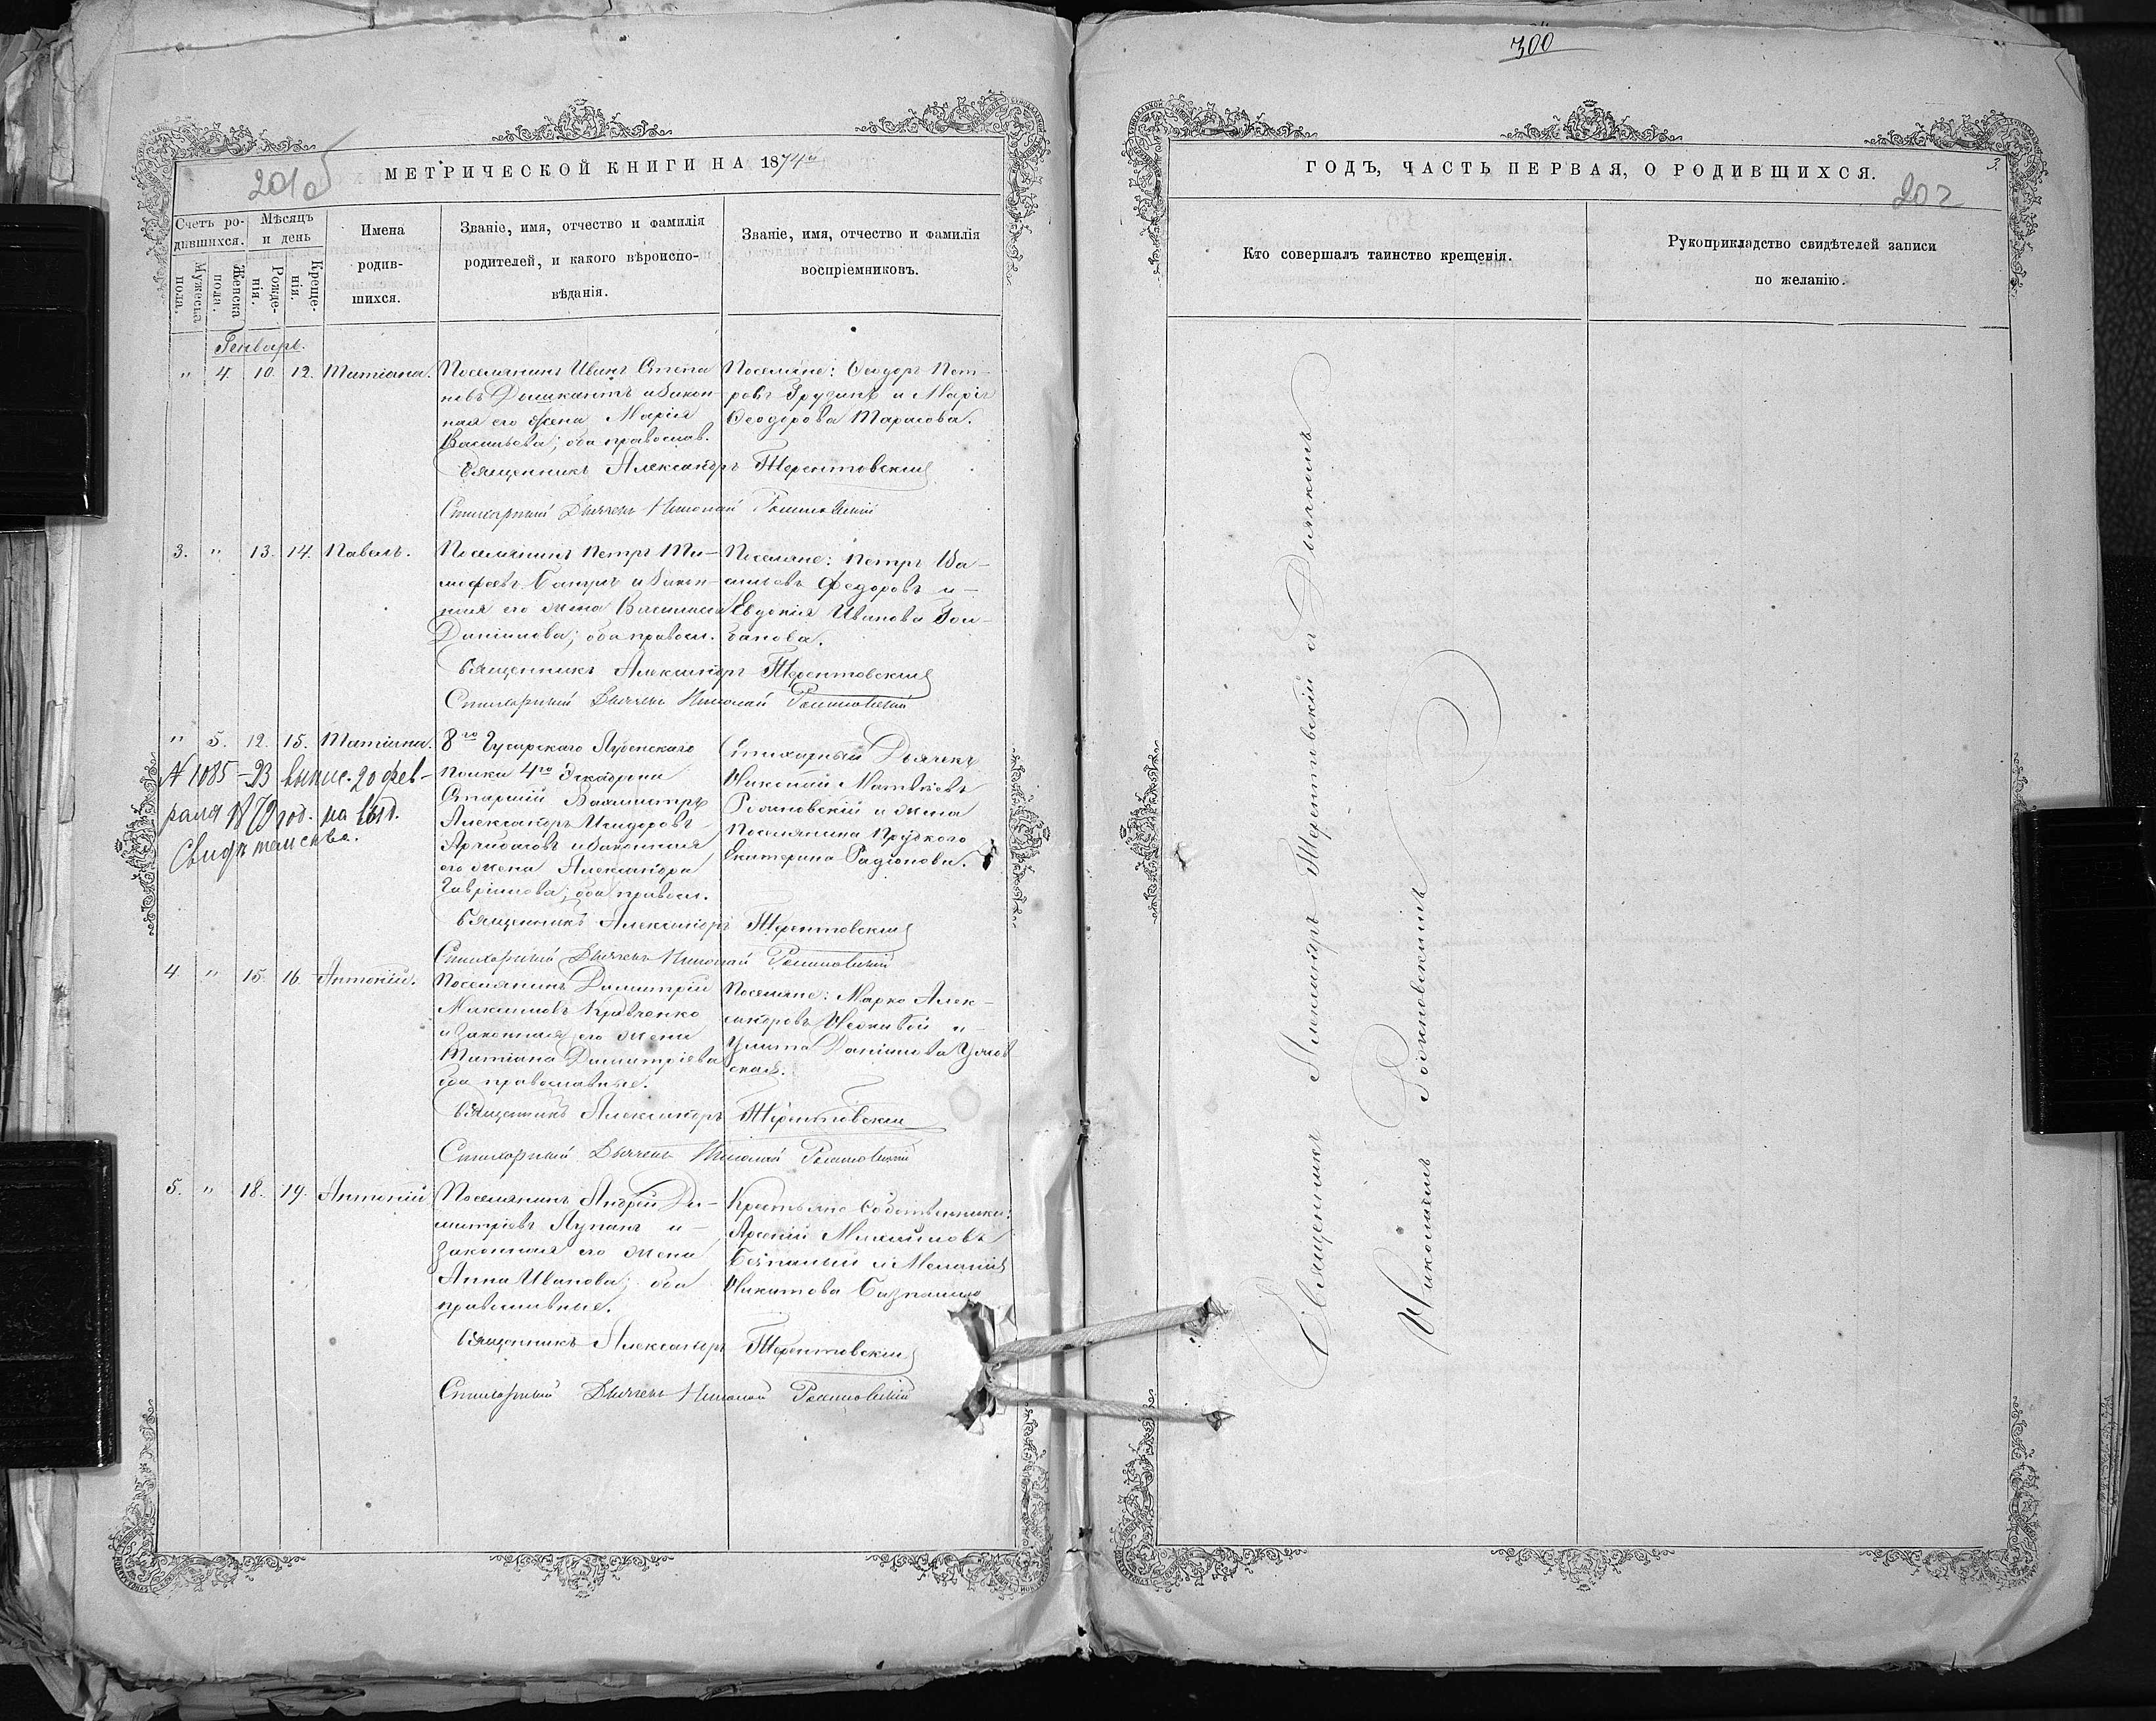 300
МЕТРИЧЕСКОЙ КНИГИ НА 1874й
201об
Счетъ ро-
дившихся.
Мужеска
пола.
Женска
пола.
Мѣсяцъ
и день
Рожде-
нія.
Креще-
нія.
Имена
родив-
шихся.
Званіе, имя, отчество и фамилія
родителей, и какого вѣроиспо-
вѣданія.
Званіе, имя, отчество и фамилія
воспріемниковъ.
Генварь.
" 4. 10. 12. Татіана.
Поселянинъ Иванъ Степа
новъ и закон-
ная его жена Марія
Васильева; оба православ.
Поселяне: Ѳеодоръ Пет-
ровъ и Марія
Ѳеодорова Тарасова.
Священникъ Александръ Терентовскій
Стихарный Дьячекъ Николай
3. " 13. 14. Павелъ.
Поселянинъ Петръ Ти-
мофѣевъ и закон-
ная его жена Василиса
Даніилова; оба правосл.
Поселяне: Петръ Ва-
сильевъ Федоровъ и
Евдокія Иванова
Священникъ Александръ Терентовскій
Стихарный Дьячекъ Николай
" 5. 12. 15. Татіана.
№ 1085 - 23 выпис. 20 фев-
раля 1879 год. на выд.
Свидѣтельства.
8го Гусарскаго Лубенскаго
полка 4го Эскадрона
Старшій Вахмистръ
Александръ Исидоровъ
и законная
его жена Александра
Гавріилова; оба правосл.
Стихарный Дьячекъ
Николай Матвѣевъ
и жена
поселянина
Екатерина Радіонова.
Священникъ Александръ Терентовскій
Стихарный Дьячекъ Николай
4. " 15. 16. Антоній.
Поселянинъ Димитрій
Максимовъ Кравченко
и законная его жена
Татіана Димитріева
оба православные.
Поселяне: Марко Алек-
сандровъ
Улита Даніилова
Священникъ Александръ Терентовскій
Стихарный Дьячекъ Николай
5. " 18. 19. Антоній
Поселянинъ Андрей Ди-
митріевъ Лупанъ и
законная его жена
Анна Иванова; оба
православные.
Крестьяне собственники:
Арсеній Михайловъ
и Меланія
Никитова
Священникъ Александръ Терентовскій
Стихарный Дьячекъ Николай
ГОДЪ, ЧАСТЬ ПЕРВАЯ, О РОДИВШИХСЯ.
3.
202
Кто совершалъ таинство крещенія.
Рукоприкладство свидѣтелей записи
по желанію.
Священникъ Александръ Терентовскій съ Дьячкомъ
Николаемъ